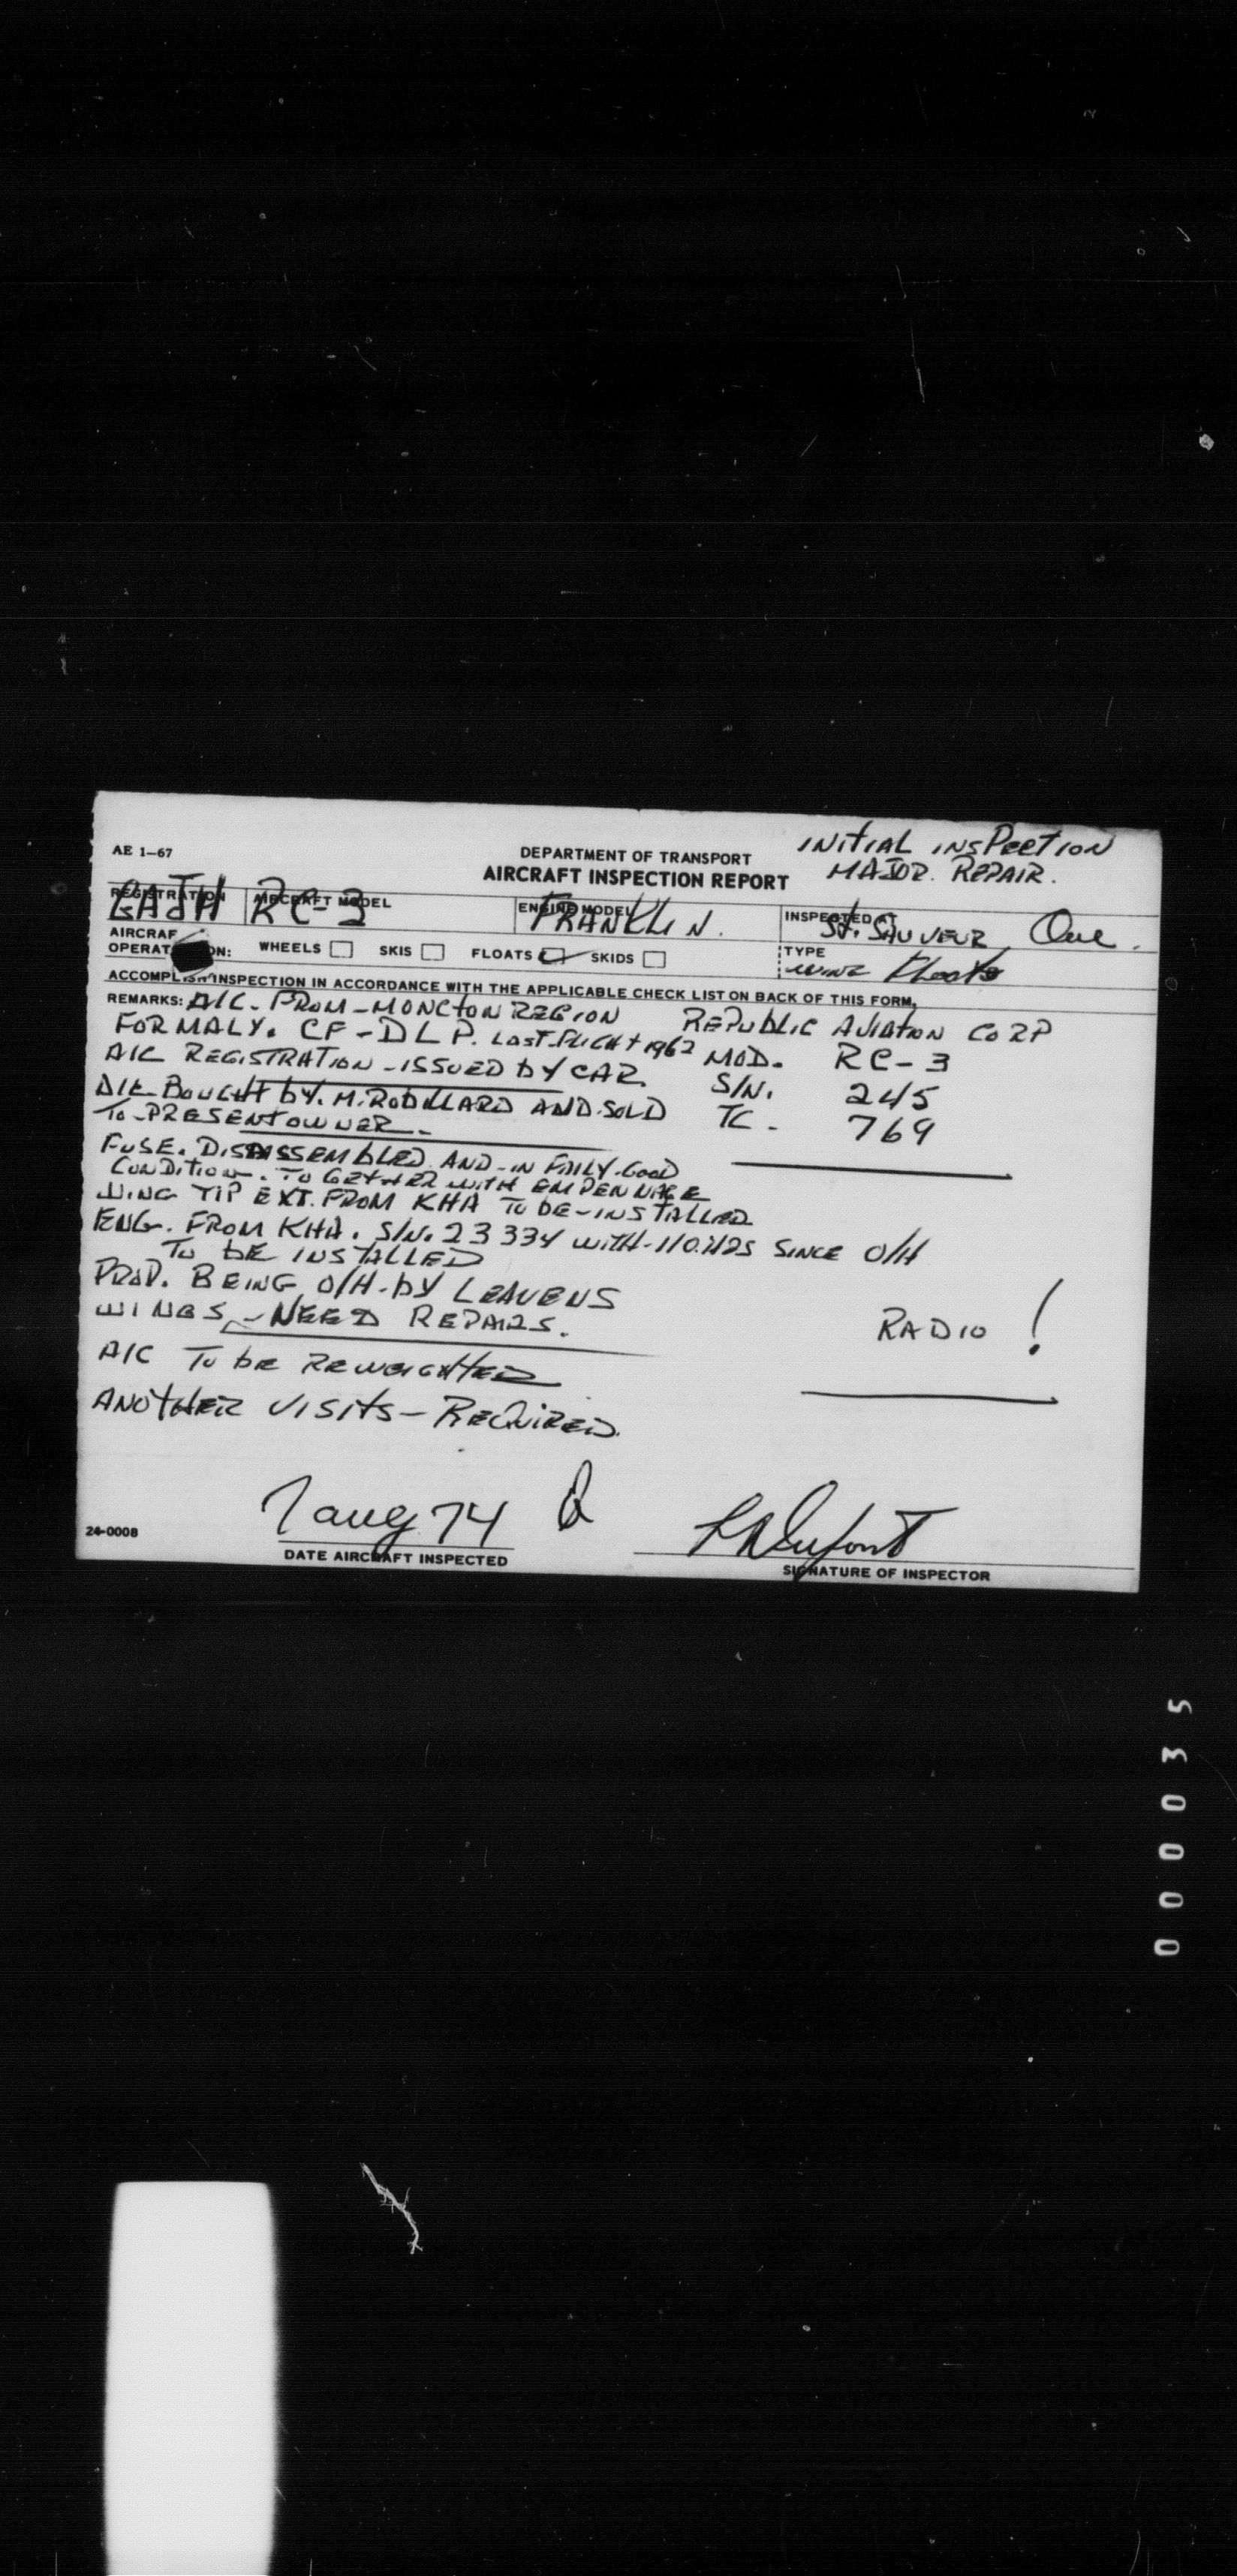 INITIAL INSPECTION
MAJOR. REPAIR.
AE 1-67
DEPARTMENT OF TRANSPORT
AIRCRAFT INSPECTION REPORT
REGISTRATION GAJH AIRCRAFT MODEL RC-3 ENGINE MODEL FRANKLIN. INSPECTED AT ST. SAUVEUR, Que.
AIRCRAF
OPERAT ON: WHEELS SKIS FLOATS SKIDS TYPE WING Floats
ACCOMPLISH INSPECTION IN ACCORDANCE WITH THE APPLICABLE CHECK LIST ON BACK OF THIS FORM.
REMARKS: A/C. FROM-MONCTON REGION REPUBLIC AVIATION CORP
FORMALY. CF-DLP. LAST-FLIGHT 1962 MOD. RC-3
A/C REGISTRATION-ISSUED BY CAR S/N. 245
BOUGHT BY. M. ROBILLARD AND.SOLD TC- 769
TO-PRESENT OWNER-
FUSE. DISASSEMBLED AND-IN FAILY-GOOD
CONDITION. TO GETHER WITH EMPENNAGE
WING TIP EXT. FROM KHA TO BE-INSTALLED
ENG. FROM KHA. S/N. 23334 WITH-110.HRS SINCE O/H
TO BE INSTALLED
PROP. BEING O/H-BY LEAVENS
WINGS-NEED REPAIRS. RADIO !
A/C TO BE REWEIGHTED
ANOTHER VISITS-REQUIRED.
7 aug 74
24-0008
DATE AIRCRAFT INSPECTED SIGNATURE OF INSPECTOR
000035